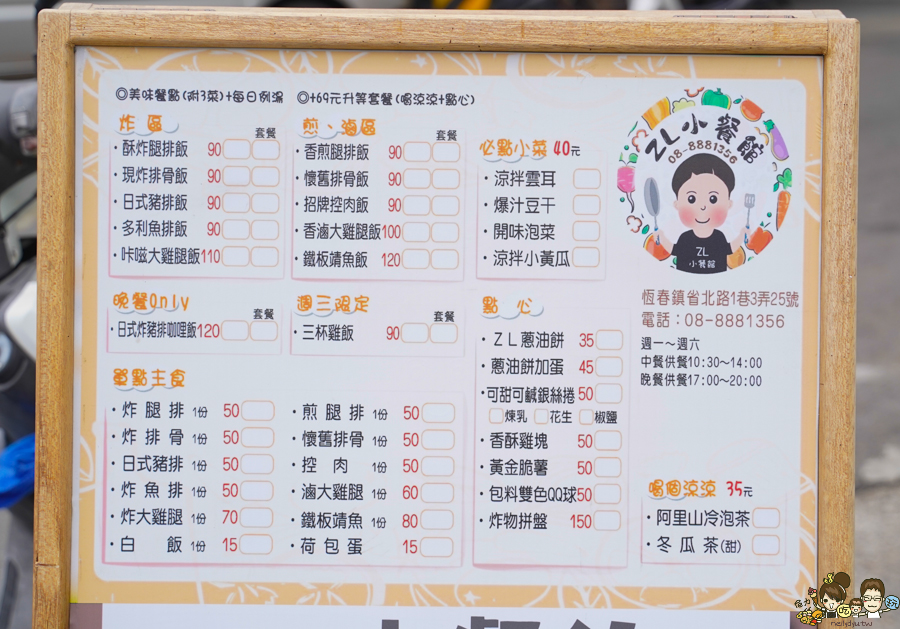 ◎美味餐點(附3菜)+每日例湯 ◎+69元升等套餐(喝涼涼+點心)
炸區 套餐
·酥炸腿排飯 90
·現炸排骨飯 90
·日式豬排飯 90
·多利魚排飯 90
·咔嗞大雞腿飯110
煎、滷區 套餐
·香煎腿排飯 90
·懷舊排骨飯 90
·招牌控肉飯 90
·香滷大雞腿飯100
·鐵板鯖魚飯 120
必點小菜 40元
·涼拌雲耳
·爆汁豆干
·開味泡菜
·涼拌小黃瓜
晚餐Only 套餐
·日式炸豬排咖哩飯120
週三限定 套餐
·三杯雞飯 90
單點主食
·炸腿排 1份 50
·炸排骨 1份 50
·日式豬排 1份 50
·炸魚排 1份 50
·炸大雞腿 1份 70
·白飯 1份 15
·煎腿排 1份 50
·懷舊排骨 1份 50
·控肉 1份 50
·滷大雞腿 1份 60
·鐵板鯖魚 1份 80
·荷包蛋 15
點心
·ZL蔥油餅 35
·蔥油餅加蛋 45
·可甜可鹹銀絲捲 50
煉乳 花生 椒鹽
·香酥雞塊 50
·黃金脆薯 50
·包料雙色QQ球50
·炸物拼盤 150
ZL小餐館
08-8881356
ZL
小餐館
恆春鎮省北路1巷3弄25號
電話：08-8881356
週一～週六
中餐供餐10:30～14:00
晚餐供餐17:00～20:00
喝個涼涼 35元
·阿里山冷泡茶
·冬瓜茶(甜)
nellydyu.tw